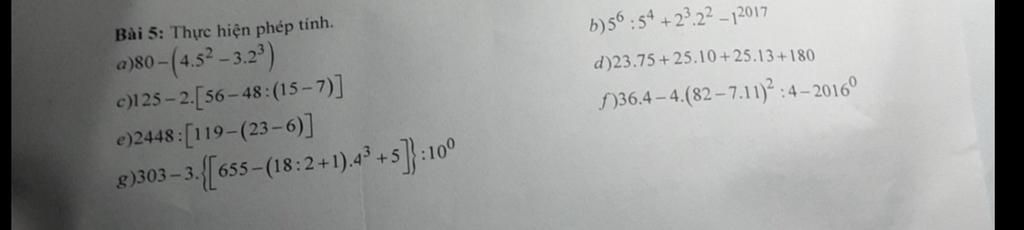 Bài 5: Thực hiện phép tính.
a)80−(4.5²−3.2³)
b)5⁶:5⁴+2³.2²−1²⁰¹⁷
c)125−2.[56−48:(15−7)]
d)23.75+25.10+25.13+180
e)2448:[119−(23−6)]
f)36.4−4.(82−7.11)²:4−2016⁰
g)303−3.{[655−(18:2+1).4³+5]}:10⁰